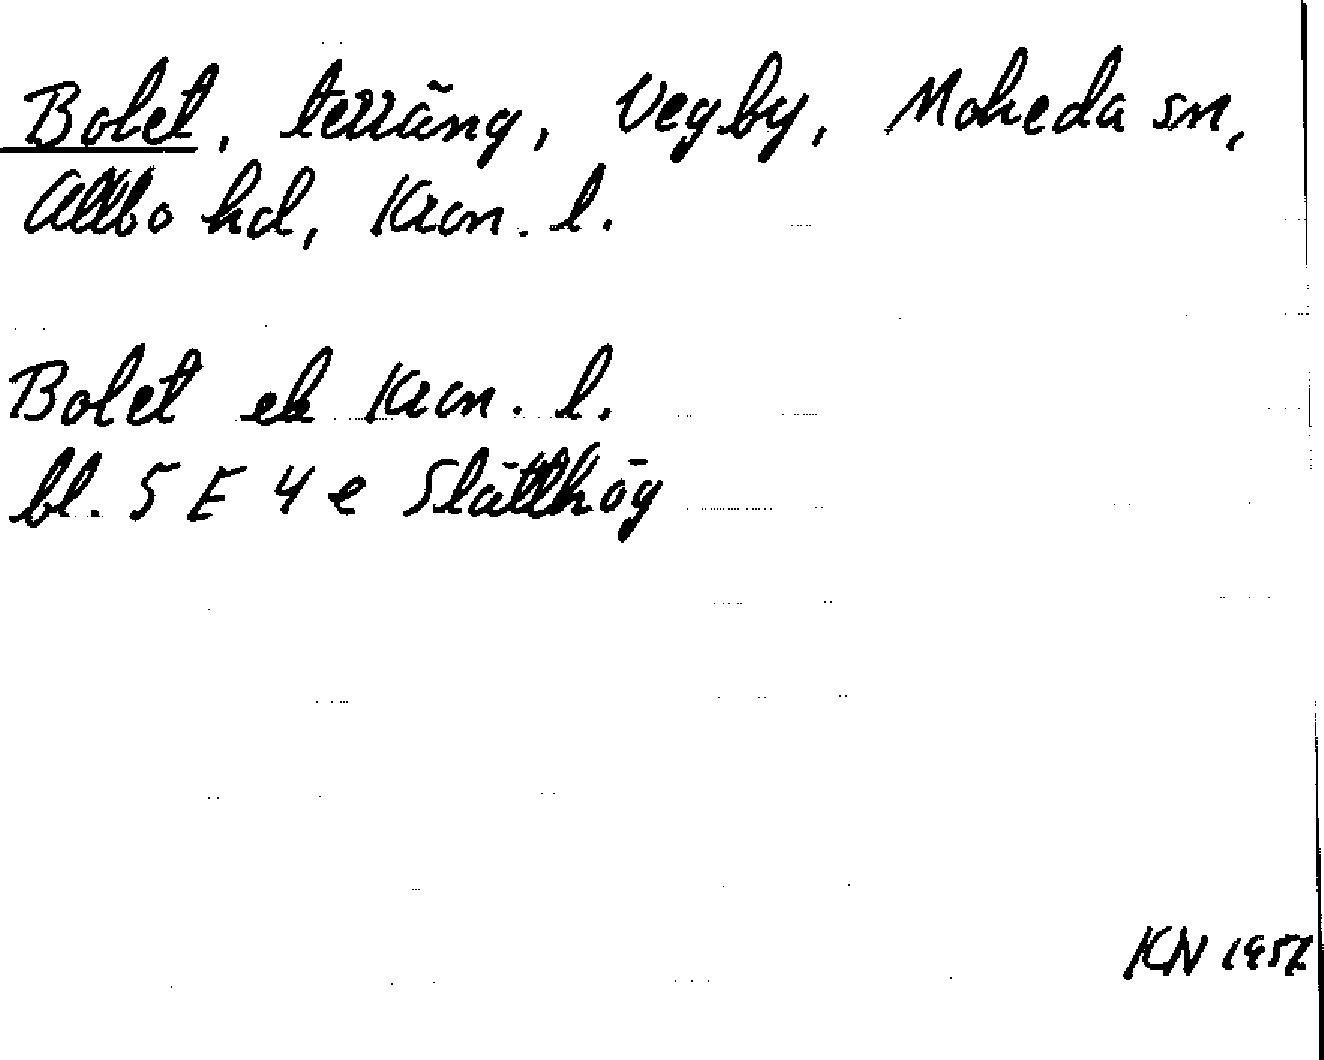 Bolet, terräng, Vegby, Moheda sn,
Allbo hd, Kron. l.
Bolet ek Kron. l.
bl. 5 E 4 e Slätthög
KN 1957